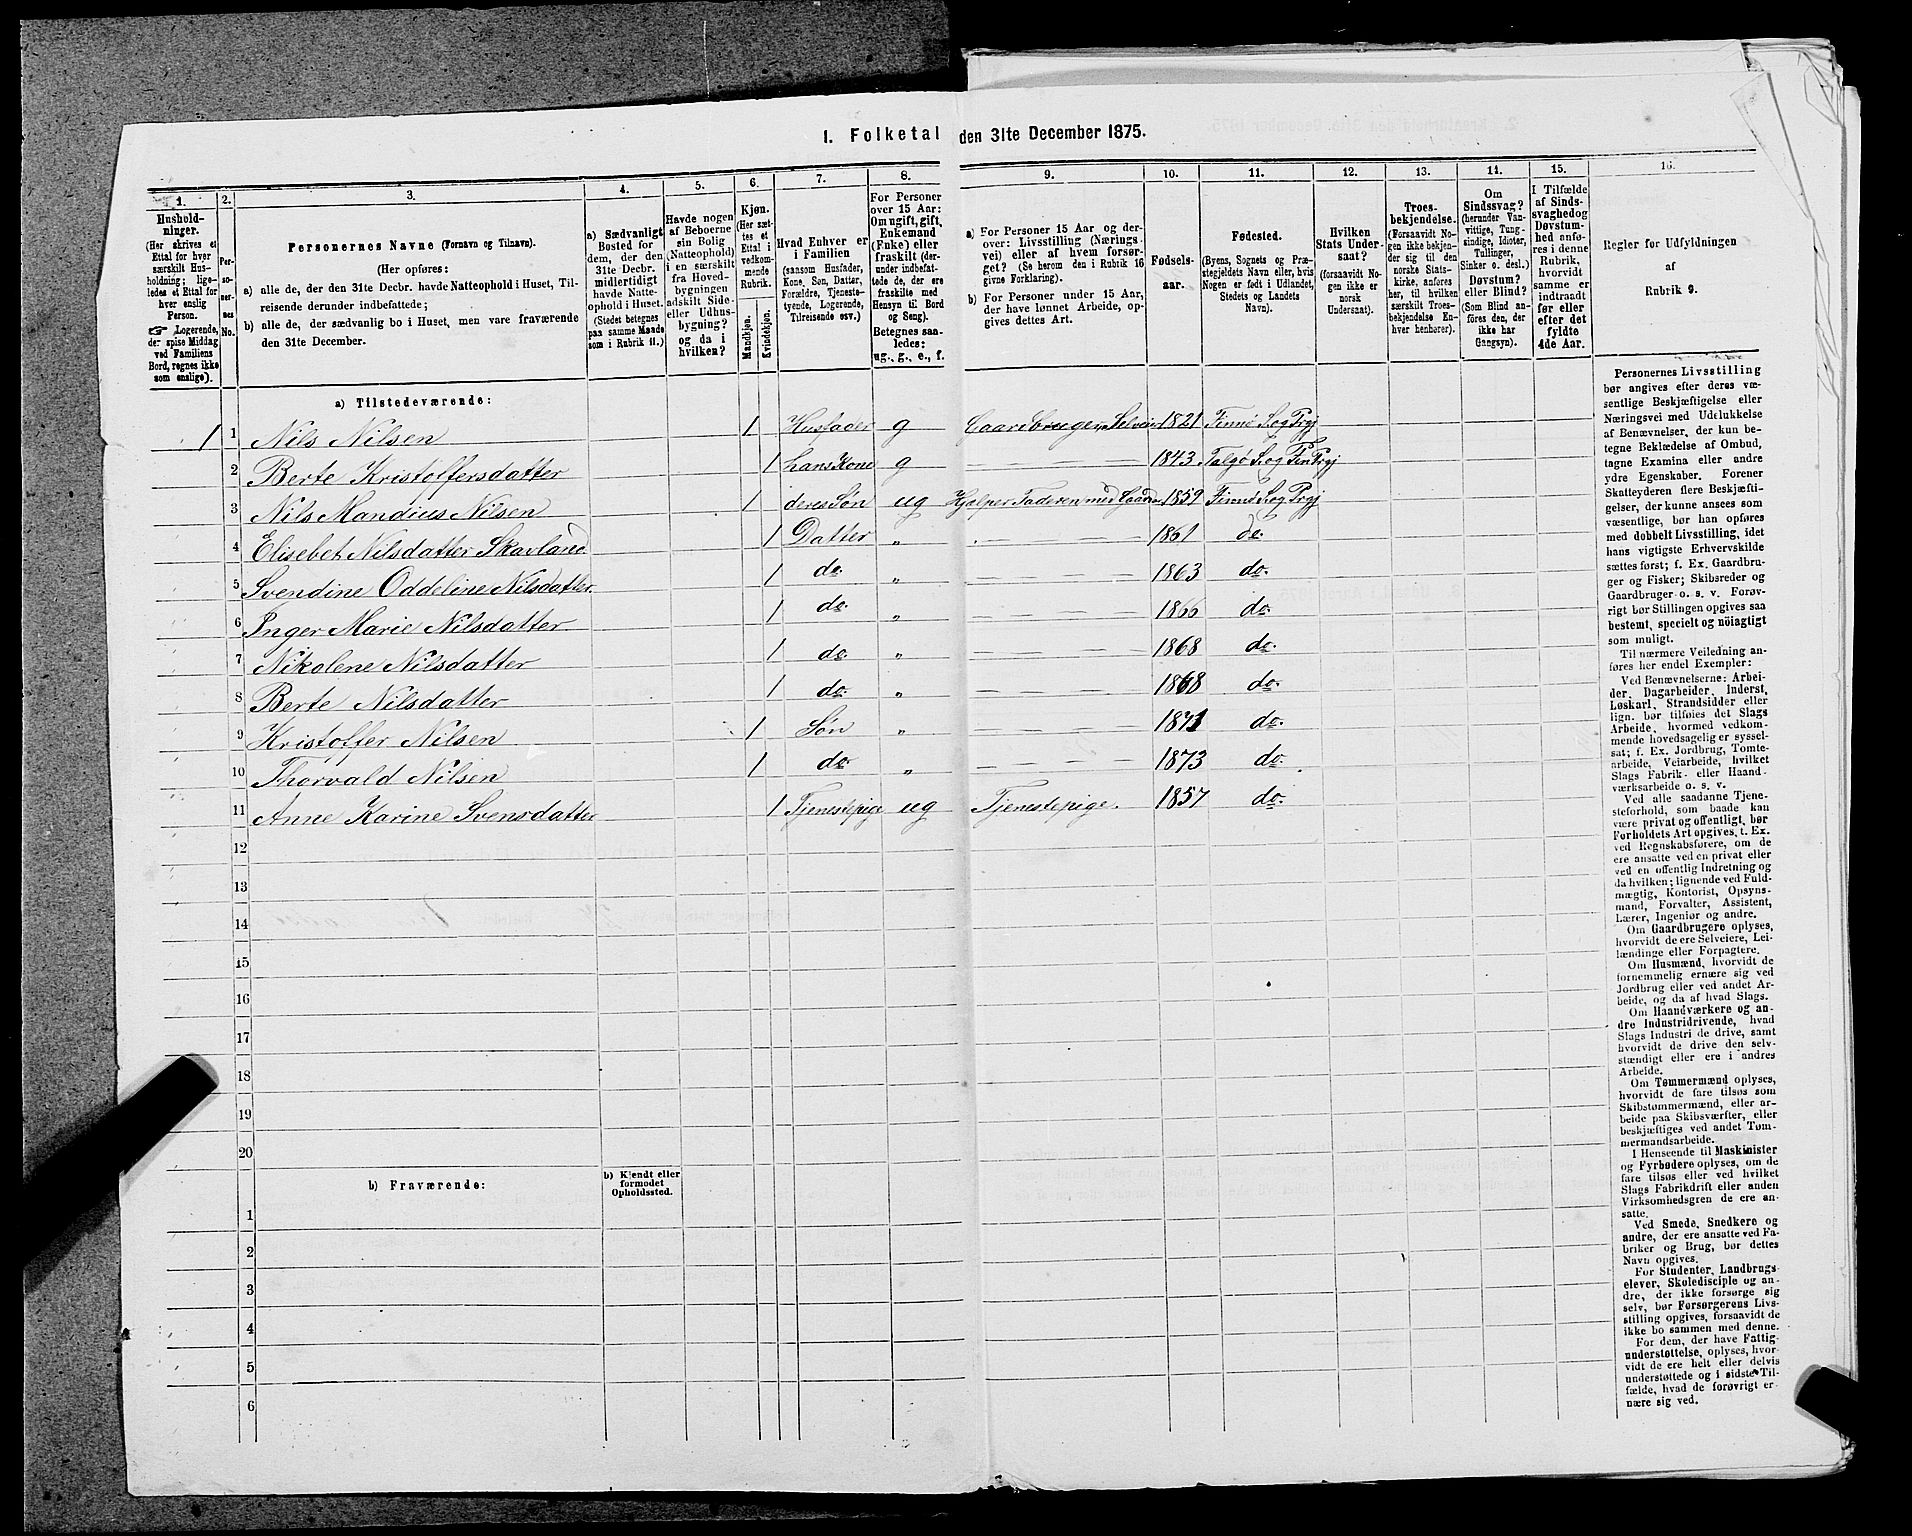 1. Folketal den 31te December 1875.
1.
Hushold-
ninger.
(Her skrives et
Ettal for hver
særskilt Hus-
holdning; lige-
ledes et Ettal for
hver enslig
Person.
☞ Logerende,
der spise Middag
ved Familiens
Bord, regnes ikke
som enslige).
2.
Per-
so-
ner-
nes
No.
3.
Personernes Navne (Fornavn og Tilnavn).
(Her opføres:
a) alle de, der den 31te Decbr. havde Natteophold i Huset, Til-
reisende derunder indbefattede;
b) alle de, der sædvanlig bo i Huset, men vare fraværende
den 31te December.
4.
a) Sædvanligt
Bosted for
dem, der den
31te Decbr.
midlertidigt
havde Natte-
ophold i Huset.
(Stedet betegnes
paa samme Maade
som i Rubrik 11.)
5.
Havde nogen
af Beboerne
sin Bolig
(Natteophold)
i en særskilt
fra Hoved-
bygningen
adskilt Side-
eller Udhus-
bygning?
og da i
hvilken?
6.
Kjøn.
(Her sæt-
tes et
Ettal i
vedkom-
mende
Rubrik.
Mandkjøn.
Kvindekjøn.
7.
Hvad Enhver er
i Familien
(sansom Husfader,
Kone, Søn, Datter,
Forældre, Tjeneste-
tyende, Logerende,
Tilreisende osv.)
8.
For Personer
over 15 Aar:
Om ugift, gift,
Enkemand
(Enke) eller
fraskilt (der-
under indbefat-
tede de, der ere
fraskilte med
Hensyn til Bord
og Seng).
Betegnes saa-
ledes:
ug., g., e., f.
9.
a) For Personer 15 Aar og der-
over: Livsstilling (Nærings-
vei) eller af hvem forsør-
get? (Se herom den i Rubrik 16
givne Forklaring).
b) For Personer under 15 Aar,
der have lønnet Arbeide, op-
gives dettes Art.
10.
Fødsels-
aar.
11.
Fødested.
(Byens, Sognets og Præ-
stegjeldets Navn eller, hvis
Nogen er født i Udlandet,
Stedets og Landets
Navn).
12.
Hvilken
Stats Under-
saat?
(forsaavidt No-
gen ikke er
norsk
Undersaat).
13.
Troes-
bekjendelse.
(Forsaavidt No-
gen ikke bekjen-
der sig til den
norske Stats-
kirke, anføres
her, til hvilken
særskilt Troes-
bekjendelse En-
hver henhører).
14.
Om
Sindssvag?
(herunder Van-
vittige, Tung-
sindige, Idioter,
Tullinger,
Sinker o. desl.)
Døvstum?
eller Blind?
(Som Blind an-
føres den, der
ikke har
Gangsyn).
15.
I Tilfælde
af Sinds-
svaghed og
Døvstum-
hed anfø-
res i denne
Rubrik,
hvorvidt
samme er
indtraadt
før eller
efter det
fyldte
4de Aar.
16.
Regler for Udfyldningen
af
Rubrik 9.
a) Tilstedeværende:
1 1 Nils Nilsen 1 Husfader g Gaardbruger Selveier 1821 Finnø S. og Prgj
2 Berte Kristoffersdatter 1 hans Kone g — — — 1843 Talgø S. og Fin Prgj
3 Nils Mandius Nilsen 1 deres Søn ug Hjelper Faderen med Gaarden 1859 Finnø S. og Prgj
4 Elisebet Nilsdatter Skavland 1 Datter „ — — — 1861 do.
5 Svendine Oddeline Nilsdatter 1 do. „ — — — 1863 do.
6 Inger Marie Nilsdatter 1 do. „ — — — 1866 do.
7 Nikolene Nilsdatter 1 do. „ — — — 1868 do.
8 Berte Nilsdatter 1 do. „ — — — 1868 do.
9 Kristoffer Nilsen 1 Søn „ — — — 1871 do.
10 Thorvald Nilsen 1 do. „ — — — 1873 do.
11 Anne Karine Svensdatter 1 Tjenestepige ug Tjenestepige. 1857 do.
12
13
14
15
16
17
18
19
20
b) Fraværende:
b) Kjendt eller
formodet
Opholdssted.
1
2
3
4
5
6
Personernes Livsstilling
bør angives efter deres væ-
sentlige Beskjæftigelse eller
Næringsvei med Udelukkelse
af Benævnelser, der kun be-
tegne Beklædelse af Ombud,
tagne Examina eller andre
ydre Egenskaber. Forener
Skatteyderen flere Beskjæfti-
gelser, der kunne ansees som
væsentlige, bør han opføres
med dobbelt Livsstilling, idet
hans vigtigste Erhvervskilde
sættes først; f. Ex. Gaardbru-
ger og Fisker; Skibsreder og
Gaardbruger o. s. v. Forøv-
rigt bør Stillingen opgives saa
bestemt, specielt og nøiagtigt
som muligt.
Til nærmere Veiledning an-
føres her endel Exempler:
Ved Benævnelserne: Arbei-
der, Dagarbeider, Inderst,
Løskarl, Strandsidder eller
lign. bør tilføies det Slags
Arbeide, hvormed vedkom-
mende hovedsagelig er syssel-
sat; f. Ex. Jordbrug, Tomte-
arbeide, Veiarbeide, hvilket
Slags Fabrik- eller Haand-
værksarbeide o. s. v.
Ved alle saadanne Tjene-
steforhold, som baade kan
være privat og offentligt, bør
Forholdets Art opgives, t. Ex.
ved Regnskabsførere, om de
ere ansatte ved en privat eller
ved en offentlig Indretning og
da hvilken; lignende ved Fuld-
mægtig, Kontorist, Opsyns-
mand, Forvalter, Assistent,
Lærer, Ingeniør og andre.
Om Gaardbrugere oplyses,
hvorvidt de ere Selveiere, Lei-
lændinge eller Forpagtere.
Om Husmænd, hvorvidt de
fornemmelig ernære sig ved
Jordbrug eller ved andet Ar-
beide, og da af hvad Slags.
Om Haandværkere og an-
dre Industridrivende, hvad
Slags Industri de drive, samt
hvorvidt de drive den selv-
stændigt eller ere i andres
Arbeide.
Om Tømmermænd oplyses,
hvorvidt de fare tilsøs som
Skibstømmermænd, eller ar-
beide paa Skibsværfter, eller
beskjæftiges ved andet Tøm-
mermandsarbeide.
I Henseende til Maskinister
og Fyrbødere oplyses, om de
fare tilsøs eller ved hvilket
Slags Fabrikdrift eller anden
Virksomhedsgren de ere an-
satte.
Ved Smede, Snedkere og
andre, der ere ansatte ved Fa-
briker og Brug, bør dettes
Navn opgives.
For Studenter, Landbrugs-
elever, Skoledisciple og an-
dre, der ikke forsørge sig
selv, bør Forsørgerens Livs-
stilling opgives, forsaavidt de
ikke bo sammen med denne.
For dem, der have Fattig-
understøttelse, oplyses, hvor-
vidt de ere helt eller delvis
understøttede og i sidste Til-
fælde, hvad de forøvrigt er-
nære sig ved.